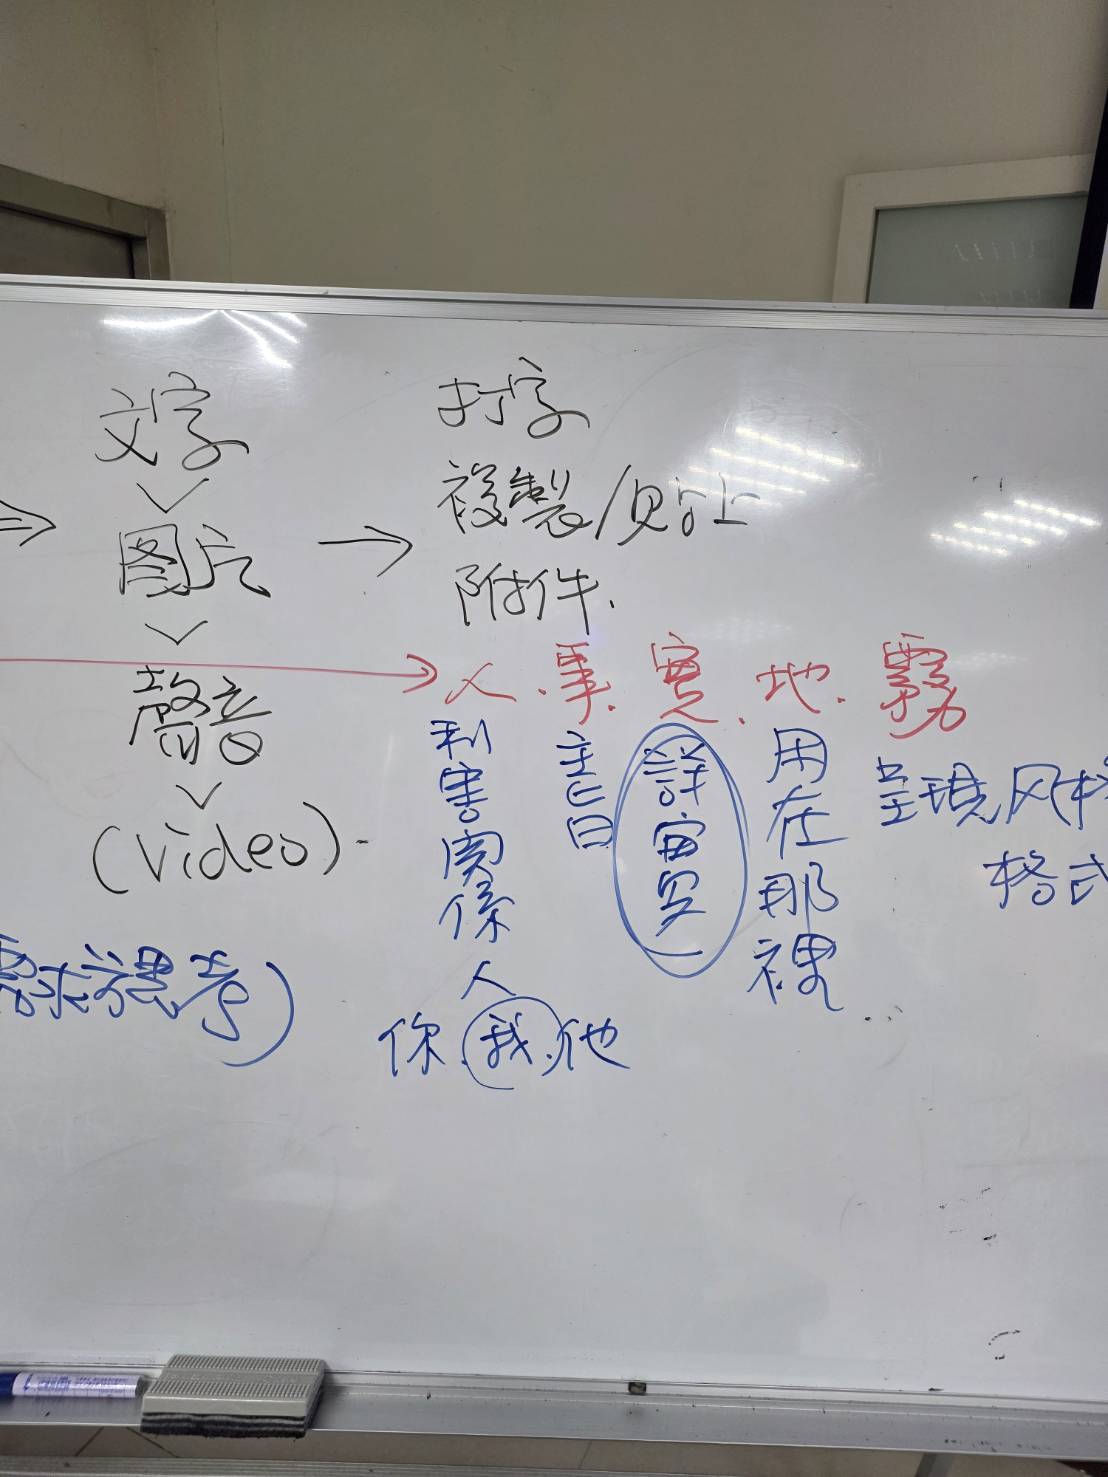 文字
∨
⇒ 图片 →
∨
聲音
∨
(Video)
打字
複製/貼上
附件.
→ 人.事.實.地.霧
利害関係人
主旨
詳
用在那裡
呈現风格
格式
需求
考)
你.我.他